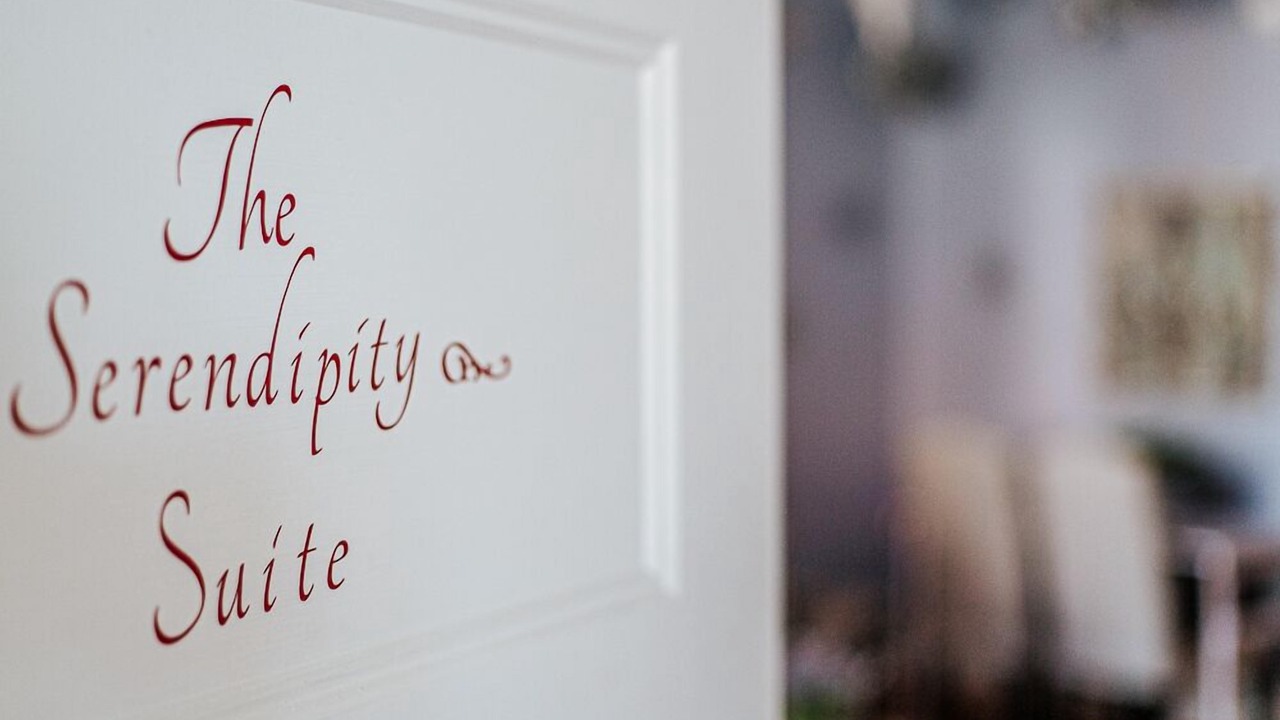 The
Serendipity
Suite